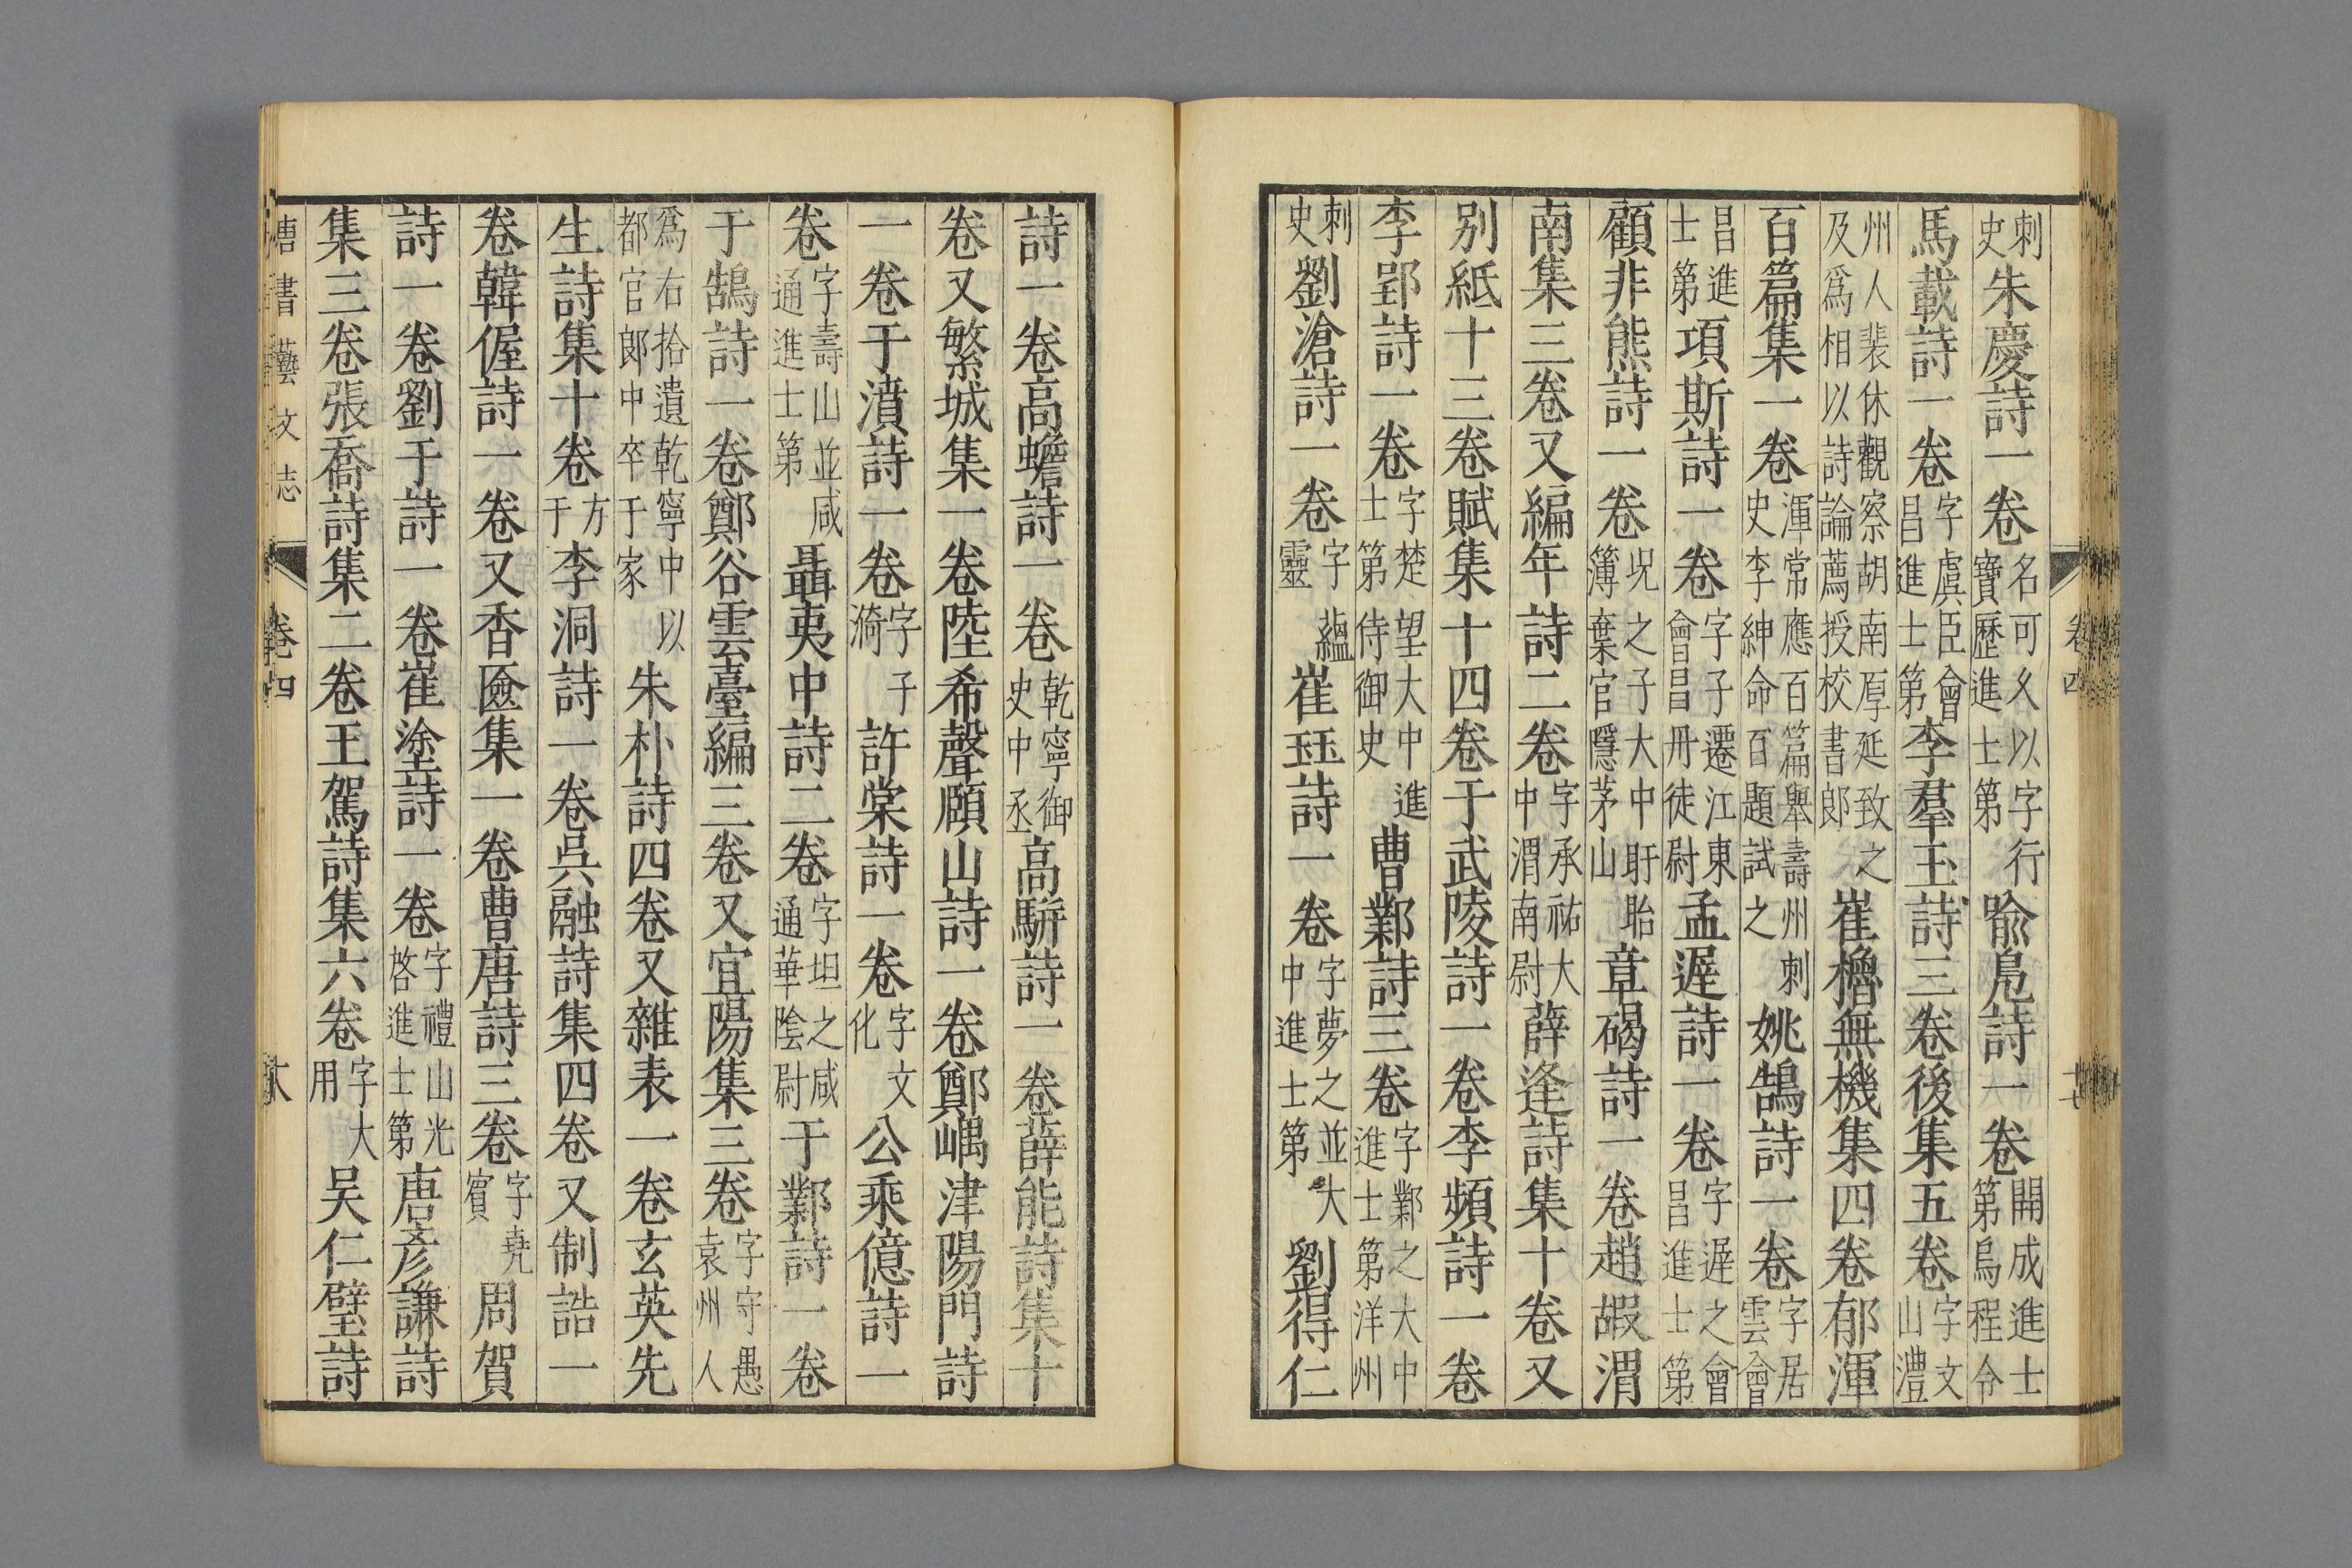 卷四 十七
刺史朱慶詩一卷名可久以字行寶歷進士第喻鳧詩一卷開成進士第烏程令
馬載詩一卷字虞臣會昌進士第李羣玉詩三卷後集五卷字文山澧
州人裴休觀察胡南厚延致之及爲相以詩論薦授校書郎崔櫓無機集四卷郁渾
百篇集一卷渾常應百篇舉壽州刺史李紳命百題試之姚鵠詩一卷字居雲會
昌進士第項斯詩一卷字子遷江東會昌丹徒尉孟遲詩一卷字遲之會昌進士第
顧非熊詩一卷況之子大中盱眙簿棄官隱茅山章碣詩一卷趙嘏渭
南集三卷又編年詩二卷字承祐大中渭南尉薛逢詩集十卷又
别紙十三卷賦集十四卷于武陵詩一卷李頻詩一卷
李郢詩一卷字楚望大中進士第侍御史曹鄴詩三卷字鄴之大中進士第洋州
刺史劉滄詩一卷字蘊靈崔珏詩一卷字夢之並大中進士第劉得仁
詩一卷高蟾詩一卷乾寧御史中丞高駢詩一卷薛能詩集十
卷又繁城集一卷陸希聲頤山詩一卷鄭嵎津陽門詩
一卷于濆詩一卷字子漪許棠詩一卷字文化公乘億詩一
卷字壽山並咸通進士第聶夷中詩二卷字坦之咸通華陰尉于鄴詩一卷
于鵠詩一卷鄭谷雲臺編三卷又宜陽集三卷字守愚袁州人
爲右拾遺乾寧中以都官郎中卒于家朱朴詩四卷又雜表一卷玄英先
生詩集十卷方干李洞詩一卷吳融詩集四卷又制誥一
卷韓偓詩一卷又香匳集一卷曹唐詩三卷字堯賓周賀
詩一卷劉于詩一卷崔塗詩一卷字禮山光啓進士第唐彥謙詩
集三卷張喬詩集二卷王駕詩集六卷字大用吴仁璧詩
唐書藝文志 卷四